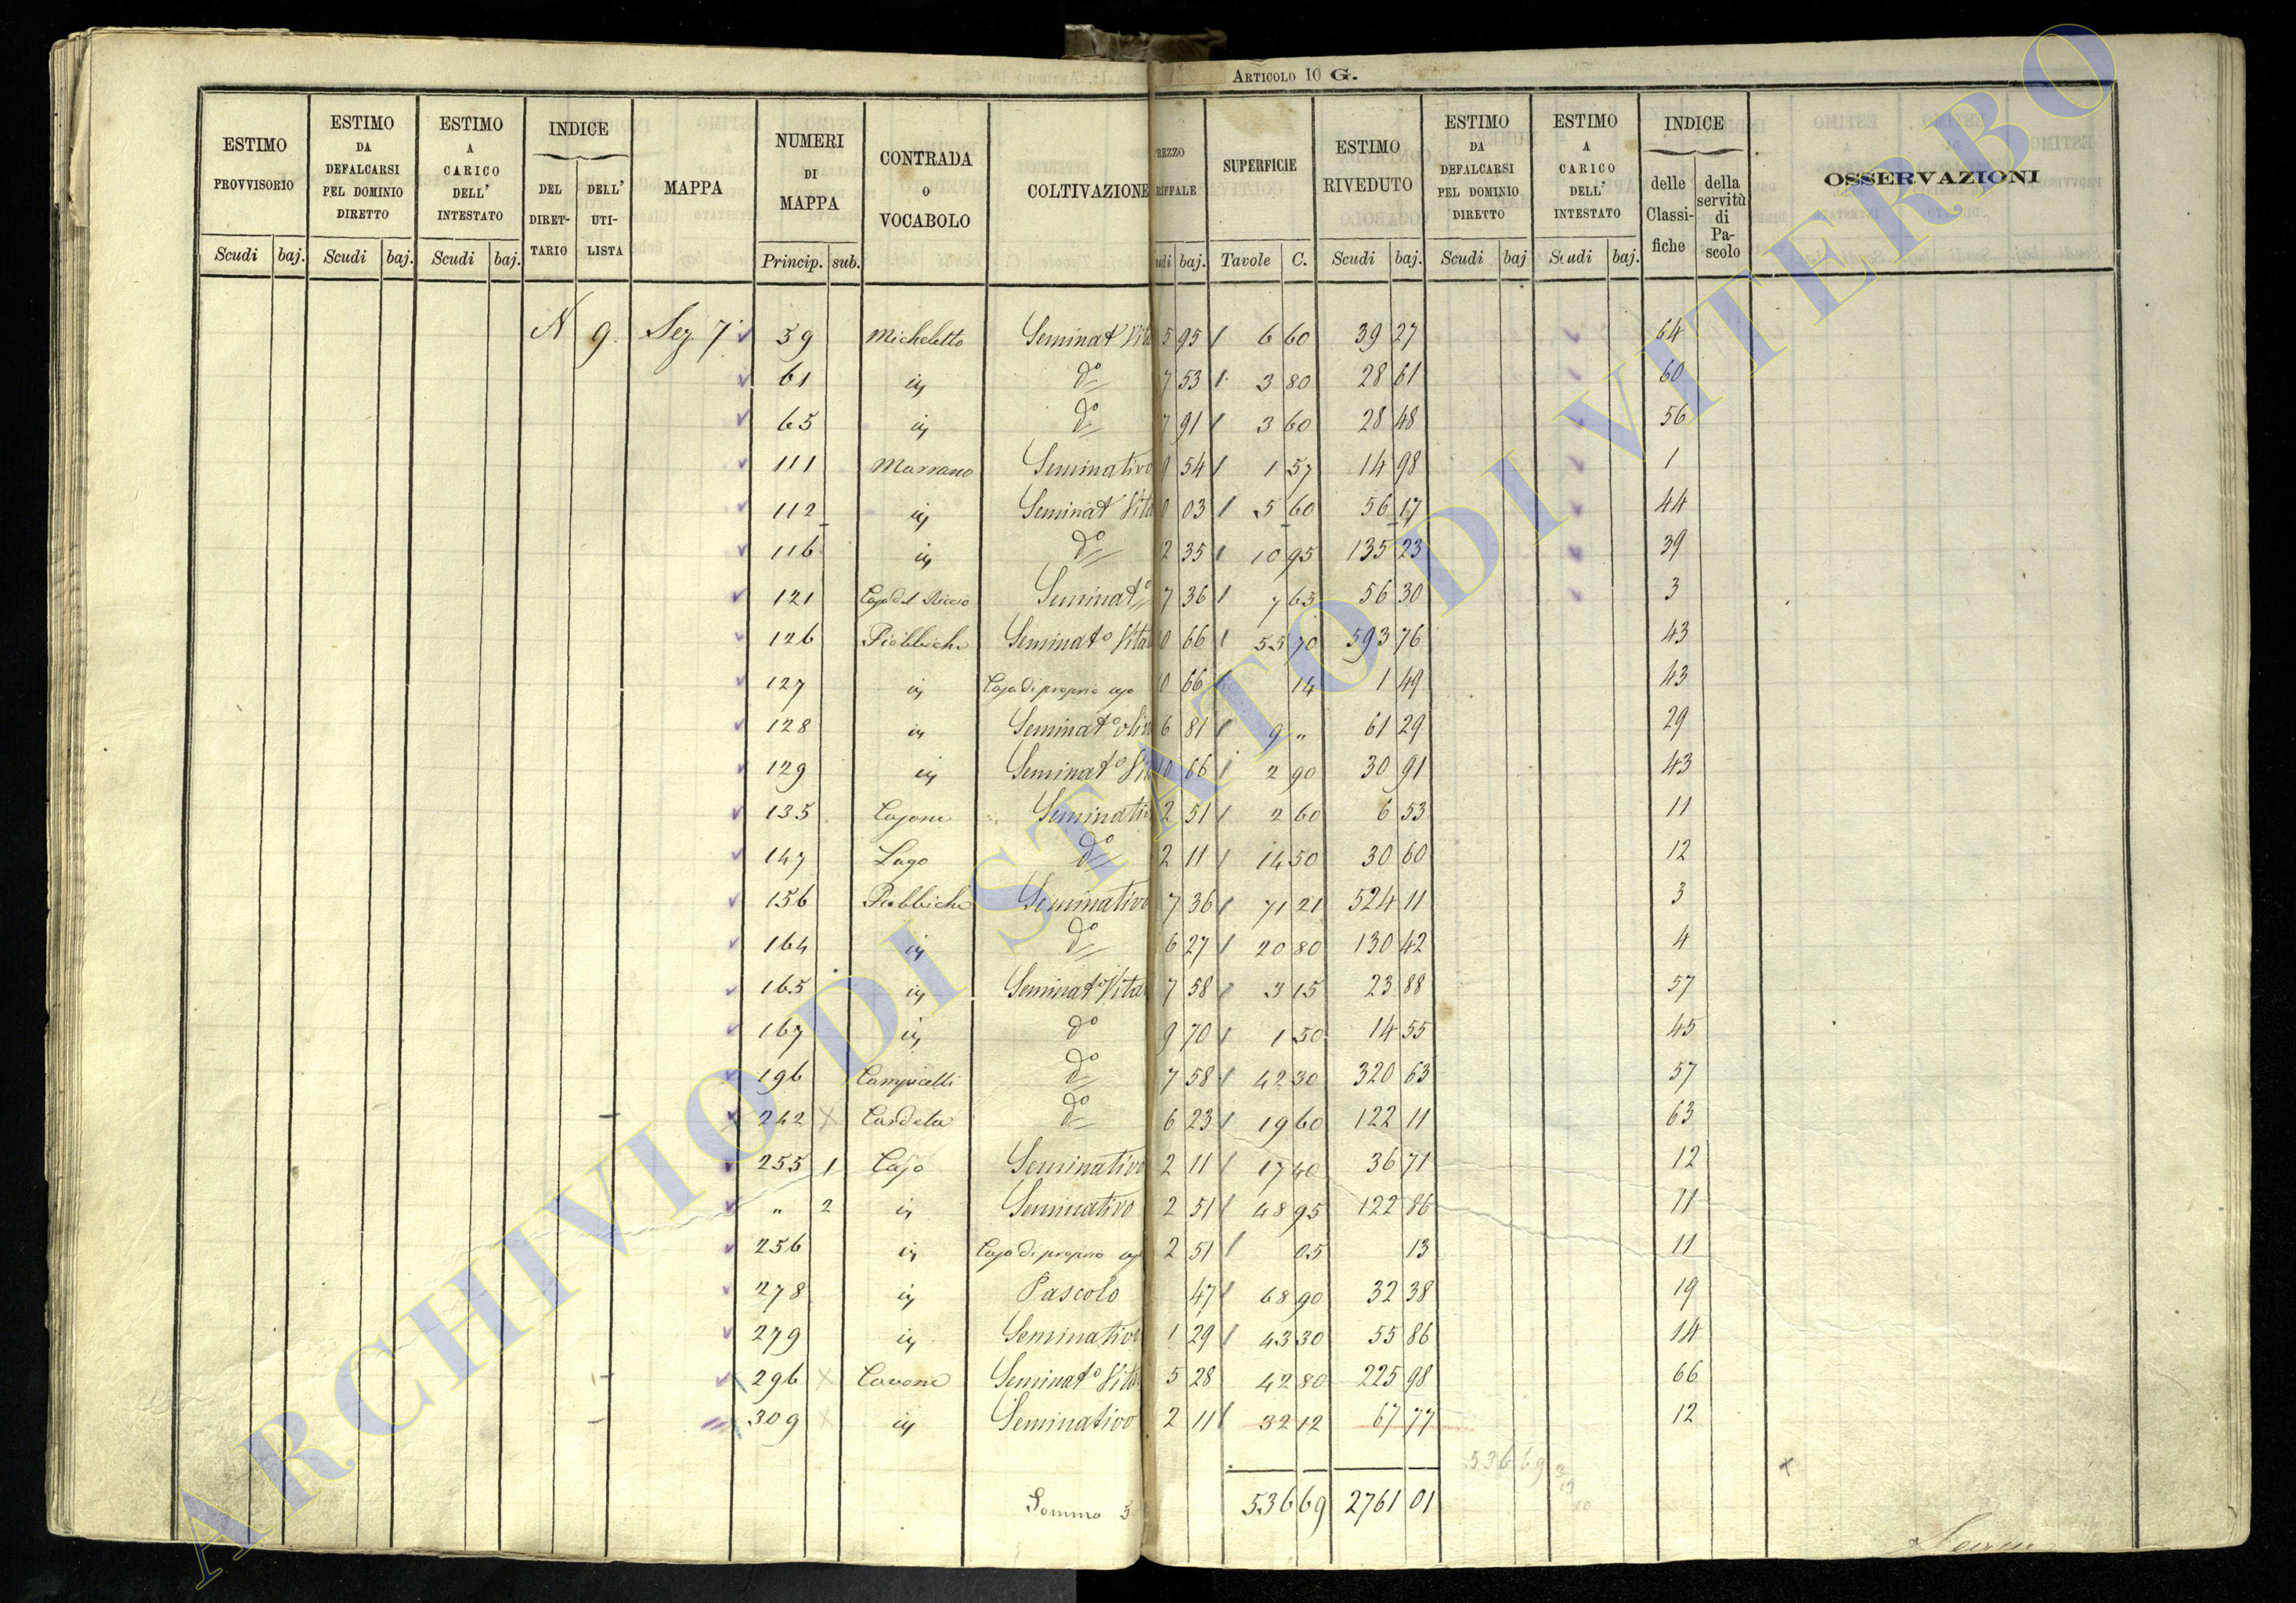 ARTICOLO 10 G.
ESTIMO PROVVISORIO
ESTIMO DA DEFALCARSI PEL DOMINIO DIRETTO
ESTIMO A CARICO DELL' INTESTATO
INDICE
DEL DIRET-TARIO
DELL' UTI-LISTA
MAPPA
NUMERI DI MAPPA
CONTRADA O VOCABOLO
COLTIVAZIONE
REZZO RIFFALE
SUPERFICIE
ESTIMO RIVEDUTO
ESTIMO DA DEFALCARSI PEL DOMINIO DIRETTO
ESTIMO A CARICO DELL' INTESTATO
INDICE
delle Classi-fiche
della servitù di Pa-scolo
OSSERVAZIONI
Scudi baj. Scudi baj. Scudi baj. Princip. sub. udi baj. Tavole C. Scudi baj. Scudi baj Scudi baj.
N 9 Sez 7 59 Micheletto Seminat Vita 5 95 6 60 39 27 64
61 id do 7 53 3 80 28 61 60
65 id do 7 91 3 60 28 48 56
111 Marrano Seminativo 9 54 1 57 14 98 1
112 id Seminat Vita 0 03 5 60 56 17 44
116 id do 2 35 10 95 135 23 39
121 Seminato 7 36 7 65 56 30 3
126 Piobbiche Seminato Vita 10 66 55 70 593 76 43
127 id Casa di proprio uso 10 66 14 1 49 43
128 id Seminato oliv 6 81 9 " 61 29 29
129 id Seminato Vit 10 66 2 90 30 91 43
135 Casone Seminati 2 51 2 60 6 53 11
147 Lago do 2 11 14 50 30 60 12
156 Piobbiche Seminativo 7 36 71 21 524 11 3
164 id do 6 27 20 80 130 42 4
165 id Seminato Vita 7 58 3 15 23 88 57
167 id do 9 70 1 50 14 55 45
196 Campicelli do 7 58 42 30 320 63 57
242 Cardeta do 6 23 19 60 122 11 63
255 1 Seminativo 2 11 17 40 36 71 12
" 2 id Seminativo 2 51 48 95 122 86 11
256 id Casa di proprio uso 2 51 05 13 11
278 id Pascolo 47 68 90 32 38 19
279 id Seminativo 1 29 43 30 55 86 14
296 Cavone Seminato Vita 5 28 42 80 225 98 66
309 id Seminativo 2 11 32 12 67 77 12
536 69
Somma 536 69 2761 01
ARCHIVIO DI STATO DI VITERBO